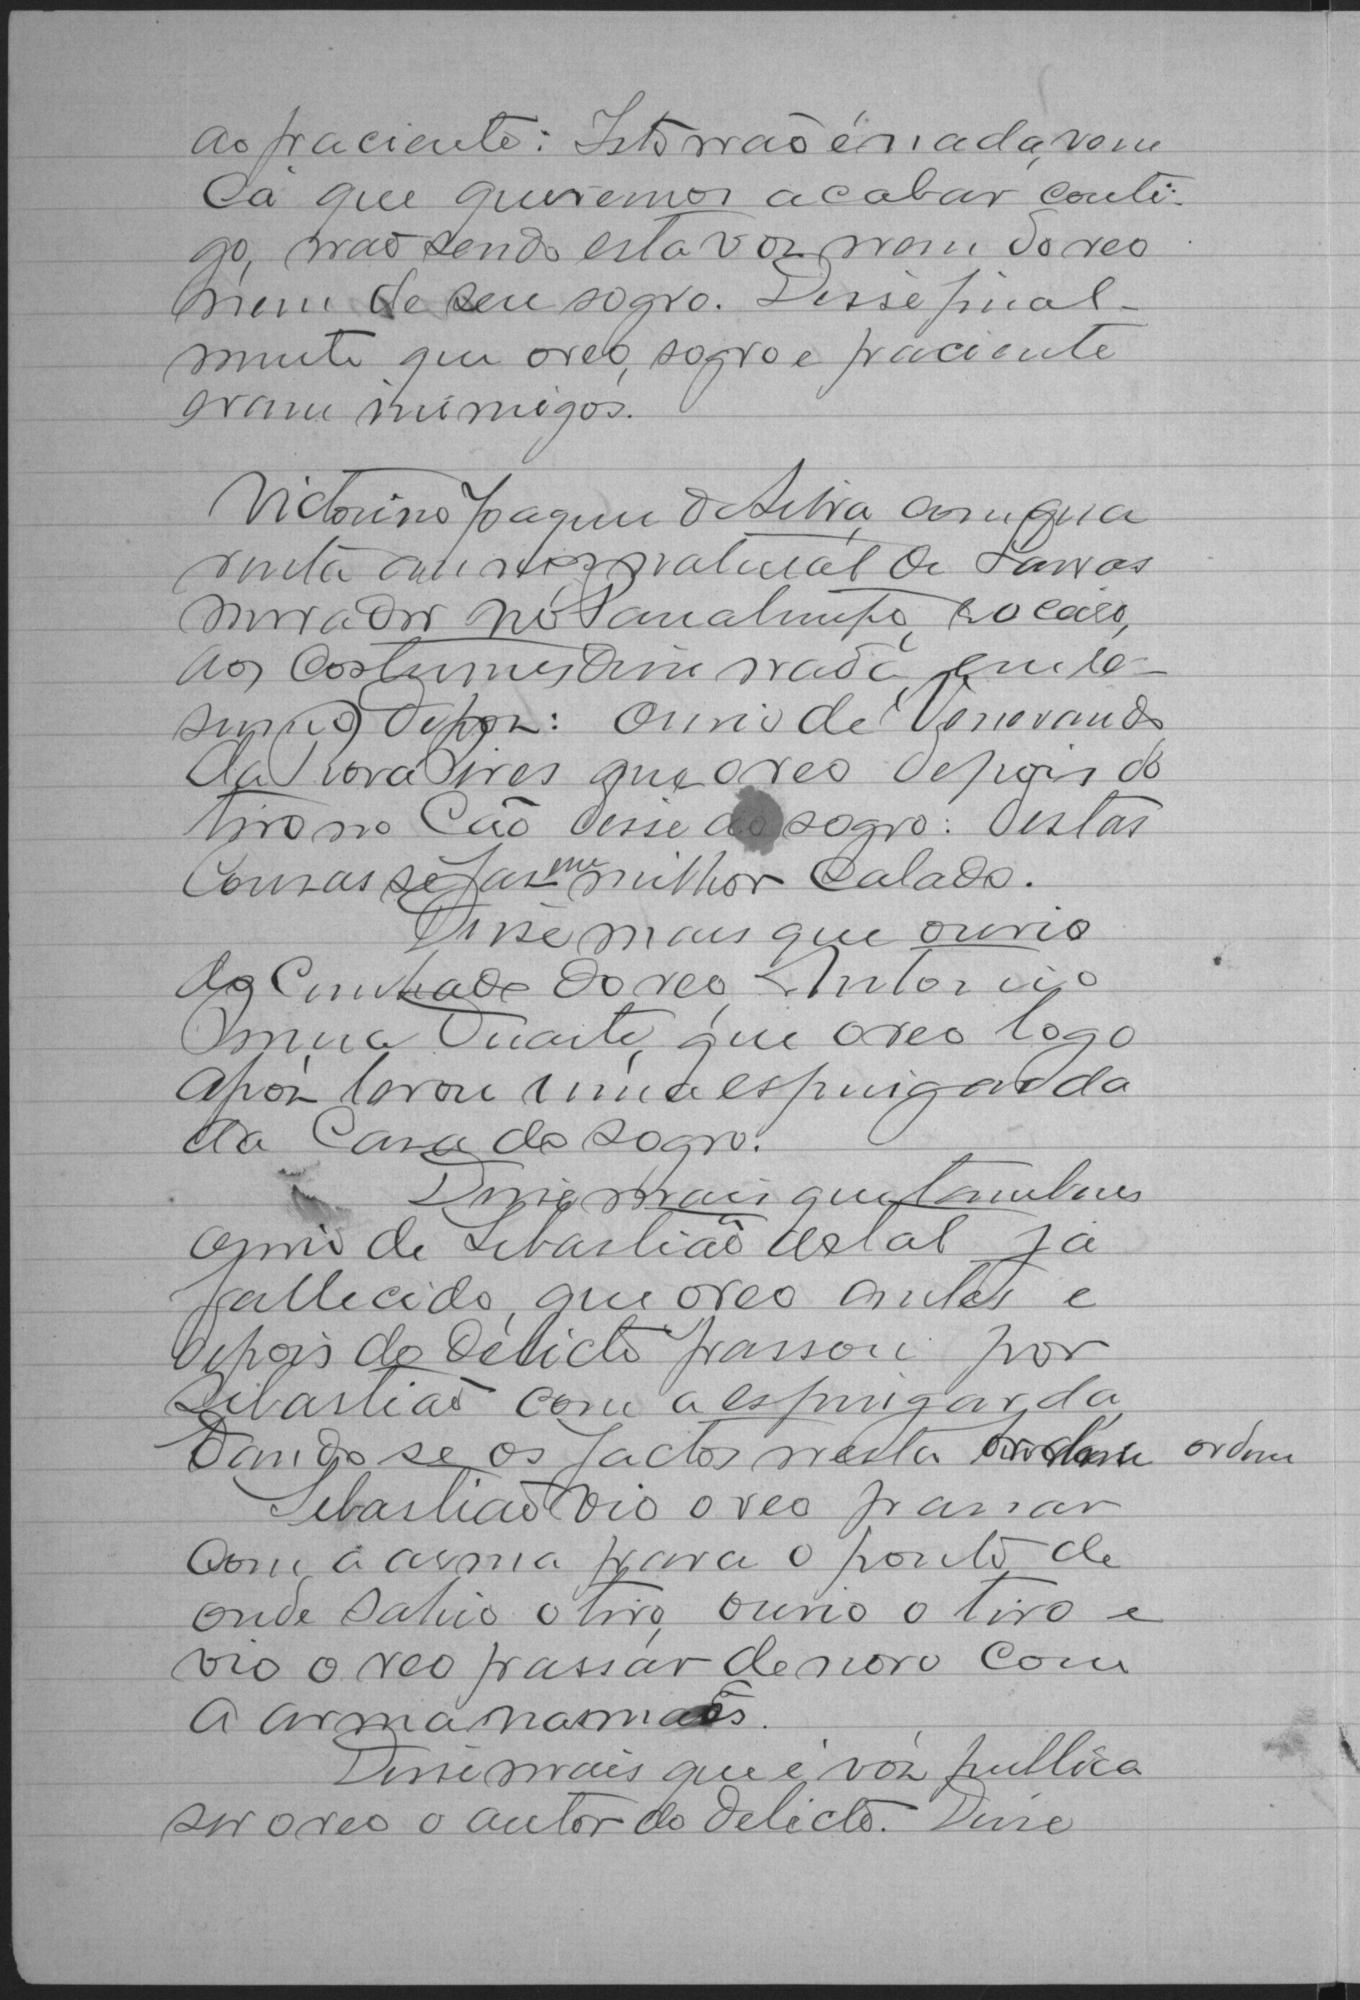 ao paciente: Isto não é nada, vem
cá que queremos acabar conti-
go, não sendo esta voz nem do reo
nem de seu sogro. Disse final-
mente que o reo, sogro e paciente
eram inimigos.
Victorino Joaquim da Silva, com qua
renta annos, natural de Lavras
morador no casado,
aos costumes disse nada, em re-
sumo depoz: ouvio de Venerando
da Pires que o reo depois do
tiro no cão disse ao sogro: destas
cousas se faz me milhor calado.
Disse mais que ouvio
do cunhado do reo, Antonio
Duarte, que o reo logo
apóz levou uma espingarda
da casa do sogro.
Disse mais que tambem
ouvio de Sebastião de tal já
fallecido, que o reo antes e
depois do delicto passou por
Sebastião com a espingarda,
dando se os factos nesta ordem
Sebastião vio o reo passar
com a arma para o ponto de
onde sahio o tiro, ouvio o tiro e
vio o reo passar de novo com
a arma nas mãos.
Disse mais que é vóz publica
ser o reo o autor do delicto. Disse